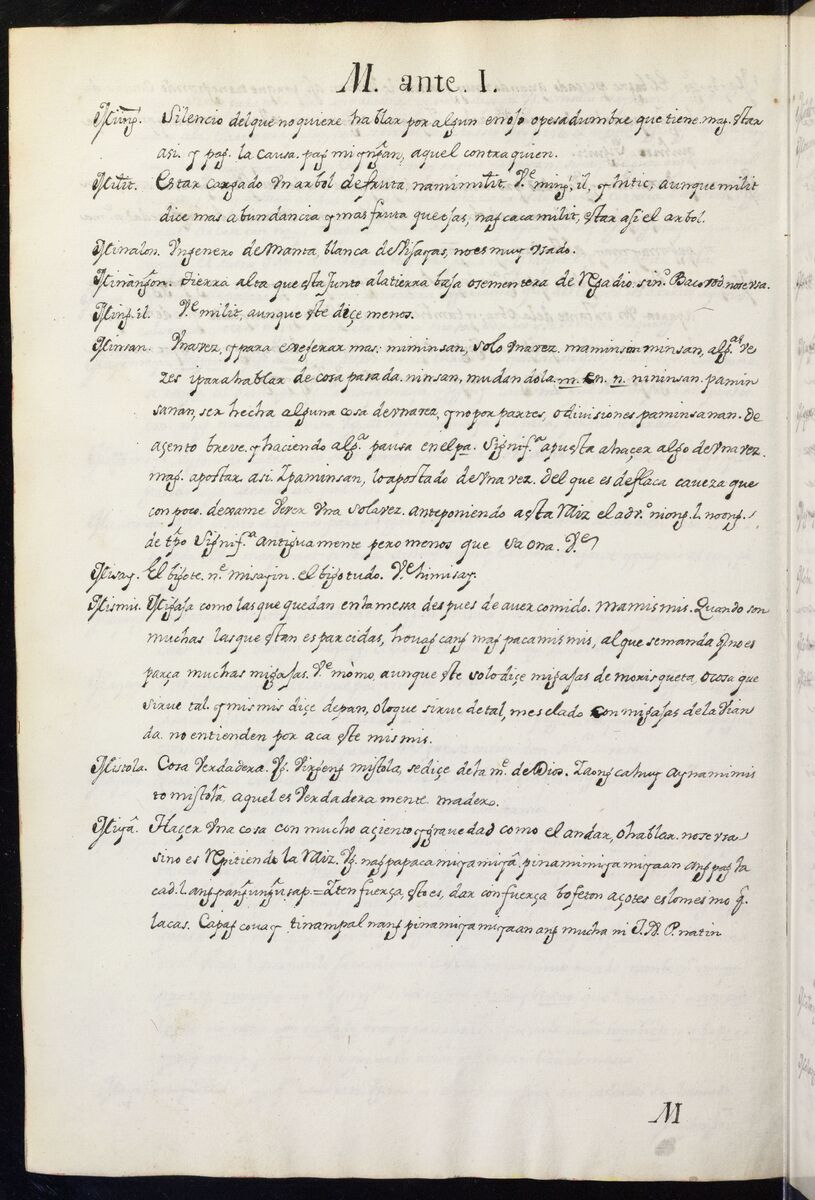 M. ante. I.
Silencio del que no quiere hablar por algun enojo o pesadumbre que tiene. mag. estar
asi. y pag. la causa. aquel contra quien.
Milit. Estar cargado un arbol de fruta, namimilit, Ve. ming, il, y hitic, aunque milit
dice mas abundancia y mas fruta que esas, nagcacamilit, estar asi el arbol.
Minalon. Un genero de Manta, blanca de Visayas, no es muy usado.
tierra alta que esta junto a la tierra baja o sementera de Regadio. sino. Bacorod. no se usa.
Ming-il. Ve. milit, aunque este diçe menos.
Minsan. Una vez, y para exagerar mas: miminsan, solo una vez. maminsan minsan, alg.as ve
zes i para hablar de cosa pasada. ninsan, mudandola. m. en. n. nininsan. pamin
sanan, ser hecha alguna cosa de una vez, y no por partes, o divisiones paminsanan. de
açento breve. y haciendo alg.a pausa en el pa. Signif.a apuesta a haçer algo de una vez.
mag. apostar asi. Ipaminsan, lo apostado de una vez. del que es de flaca caveza que
con poco. dexame bever una sola vez. anteponiendo a esta Raiz el adv.o niong. l. noong.
de tpo Signif.a antiguamente pero menos que sa ona. Ve
Misay. El bigote. n.e misayin. el bigotudo. Ve. himisay.
Mismis. Migaja como las que quedan en la messa despues de aver comido. mamismis. Quando son
muchas las que estan esparcidas, houag cang mag pacamismis, al que se manda q no es
parça muchas migajas. Ve. mòmo, aunque este solo diçe migajas de morisqueta, o cosa que
sirve tal. y mismis diçe de pan, o lo que sirve de tal, mesclado con migajas de la vian
da. no entienden por aca este mismis.
Mistola. Cosa Verdadera. Vg. Virgeng mistola, se diçe de la m.e de Dios. Iaong cahuy ay namimis
to mistolâ, aquel es Verdaderamente madero.
Miyâ. Haçer una cosa con mucho açiento y gravedad como el andar, o hablar. no se usa
sino es Repitiendo la Raiz. Vg. nagpapaca miya miyâ, pinamimiya miyaan ang pag la
cad. l. ang pangungusap. = Iten fuerça, esto es, dar con fuerça bofeton açotes es lo mesmo q.
lacas. Capag couay tinampal nang pinamiya miyaan ang mucha ni J. X. P. natin
M